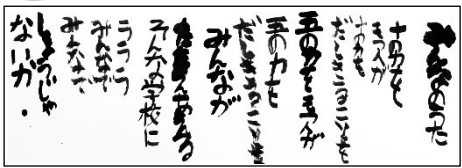 みんなのうた
十の力を
もつ人が
十の力を
だしきることを
五の力をもつ人が
五の力を
だしきることを
みんなが
みんなの学校に
みんなで
みんなで
しようじゃ
ないか.